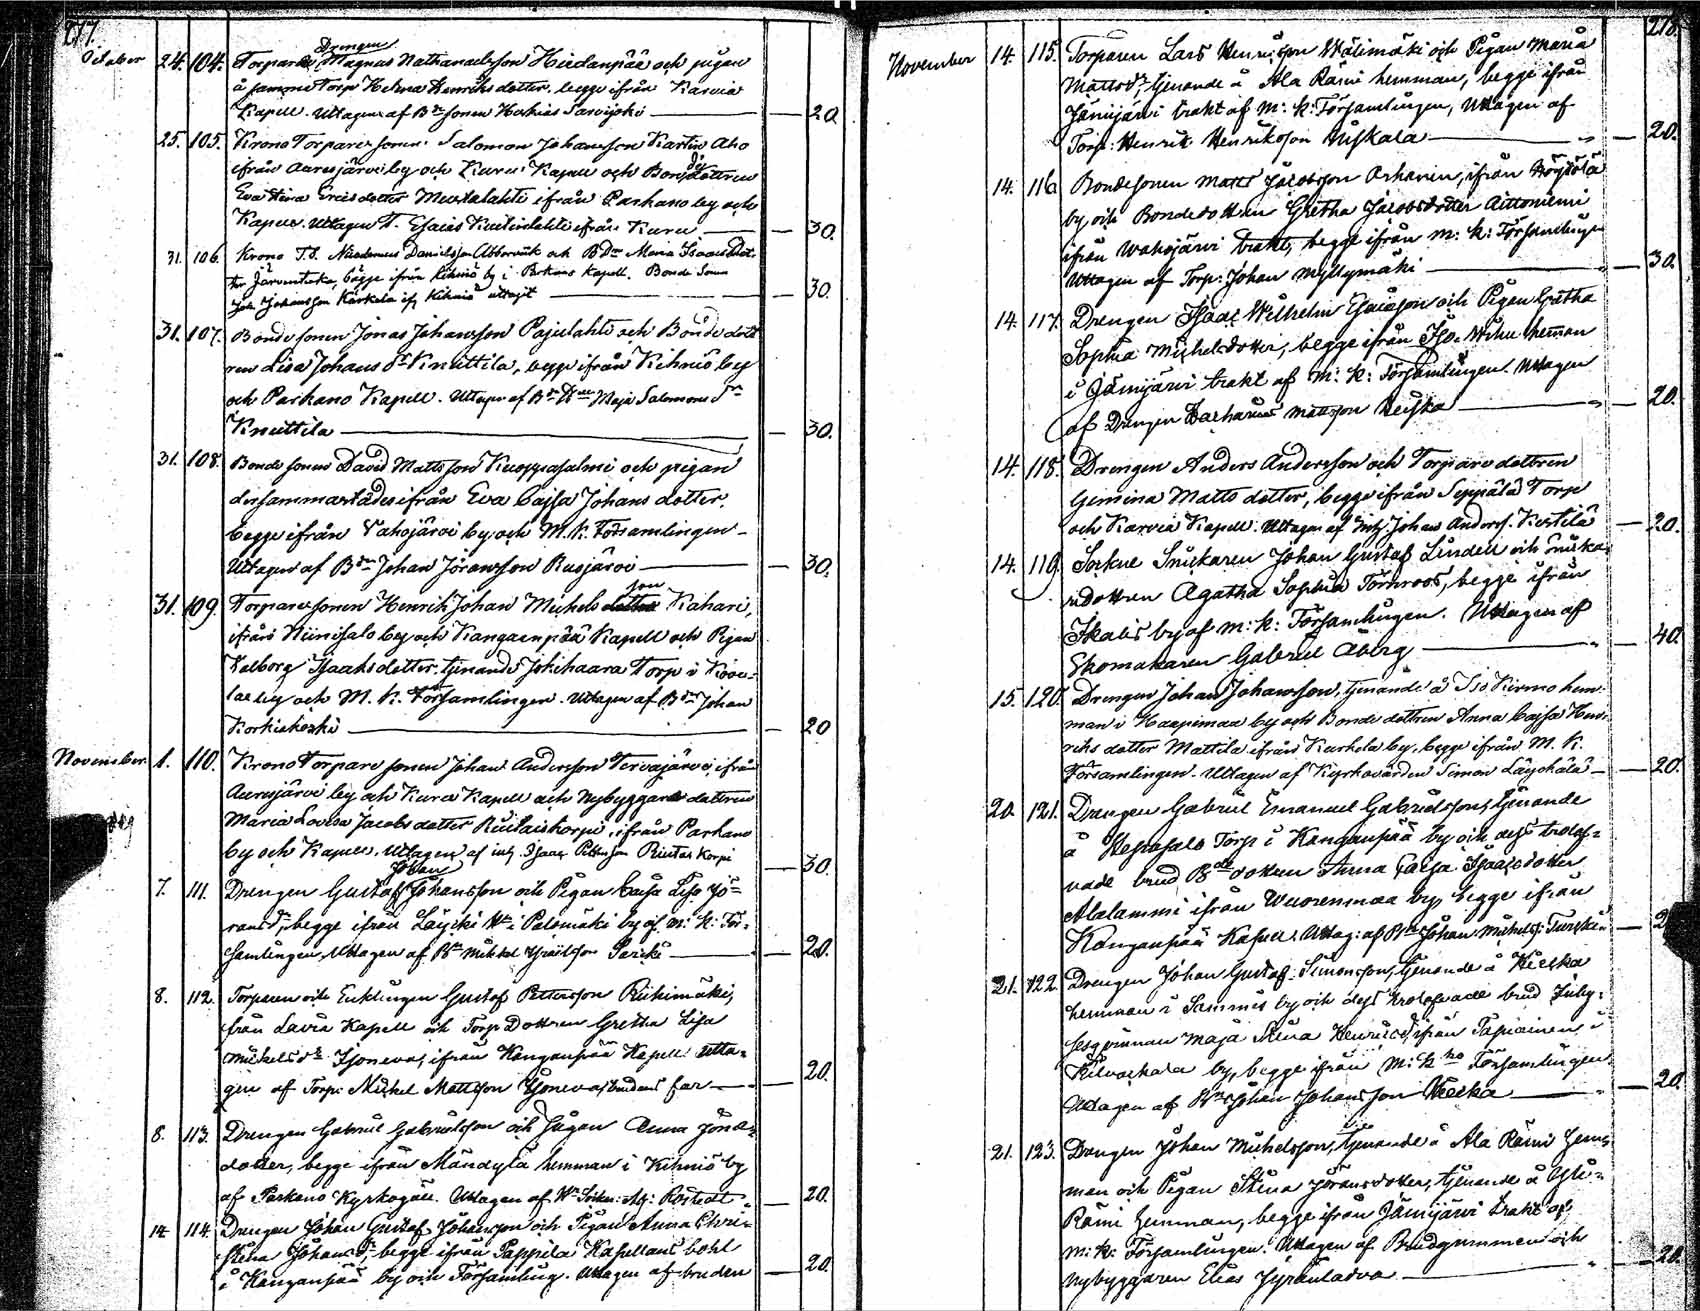 277.
October 24. 104. Torpare Drengen Magnus Nathanaelsson Hiedanpää och pigan
å samma Torp Helena Henriksdotter, begge ifrån Karvia
Kapell. Uttagen af Bdesonen Hiskias Sarvijoki — 20.
25. 105. Krono Torparesonen Salomon Johansson Aho
ifrån Aurejärvi by och Kuru Kapell och Bondedottren
Eva Stina Ericsdotter Mustalahti ifrån Parkano by och
Kapell. Uttagen T. Esaias ifrån Kuru — 30.
31. 106. Krono T.S. Nicodemus Danielsson och B.Dn Maria Isaacs Dot-
ter begge ifrån Kihniö by i Parkano Kapell. Bonde Sonen
Joh. Johansson Karkela ifr. Kihniö uttagit — 30.
31. 107. Bondesonen Jonas Johansson Pajulahti och Bonde dott
ren Lisa Johans dr Knuuttila, begge ifrån Kihniö by
och Parkano Kapell. Uttagen af Maja Salomons Dr
Knuuttila — 30.
31. 108. Bonde sonen David Mattsson Kuoppasalmi och pigan
dersammastädes ifrån Eva Cajsa Johans dotter,
begge ifrån Vahojärvi by och M. K. Församlingen
Uttagen af Bdn Johan Jöransson Rusjärvi — 30.
31. 109. Torparesonen Henrik Johan Michels son Kahari,
ifrån Niinisalo by och Kangaenpää Kapell och Pigan
Valborg Isaaksdotter, tjenande Jokihaara Torp i
by och M. K. Församlingen. Uttagen af Bdn Johan
Korkiakoski — 20
November. 1. 110. Krono Torpare sonen Johan Andersson Tervajärvi, ifrån
Aurejärvi by och Kuru Kapell och Nybyggare dottren
Maria Lovisa Jacobsdotter ifrån Parkano
by och Kapell. Uttagen af Isaac Pettersson korpi — 30.
7. 111. Drengen Gustaf Johan Johansson och Pigan Caisa Lisa Jö-
ransdr, begge ifrån Läycki i Palomäki by af M: K: För-
samlingen, Uttagen af Bdn Mikkel — 20.
8. 112. Torparen och Enklingen Gustaf Pettersson Riihimäki,
från Lavia Kapell och Torp Dottren Gretha Lisa
Michelsdr Isoneva, ifrån Kangaspää Kapell. Utta-
gen af Torp: Mickel Mattsson Isoneva, brudens far — 20.
8. 113. Drengen Gabriel Gabrielsson och Pigan Anna Jonæ-
dotter, begge ifrån Mändylä hemman i Kihniö by
af Parkano Kyrkogäll. Uttagen af — 20.
14. 114. Drengen Johan Gustaf Johansson och Pigan Anna Chri-
stina Johansdr begge ifrån Pappila Kapellans bohl
i Kangaspää by och Församling. Uttagen af bruden — 20.
278.
November 14. 115. Torparen Lars Henricsson Wälimäki och Pigan Maria
Mattsdr, tjenande å Ala Rämi hemman, begge ifrån
Jämijärvi trakt af M: K: Församlingen, Uttagen af
Torp: Henrik Henriksson — 20.
14. 116. Bondesonen Matts Jacobsson, ifrån
by och Bondedottren Gretha Jacobsdotter Aittoniemi
ifrån Wahojärvi trakt, begge ifrån M: K: Församlingen
Uttagen af Torp: Johan Myllymäki — 30.
14. 117. Drengen Isaac Wilhelm Esaiasson och Pigan Gretha
Sophia Michelsdotter, begge ifrån Iso. hemman
i Jämijärvi trakt af M: K: Församlingen. Uttagen
af Drengen Zacharias Mattsson — 20.
14. 118. Drengen Anders Andersson och Torpare dottren
Gemina Matts dotter, begge ifrån Seppälä Torp
och Karvia Kapell. Uttagen af Johan Anderss. — 20.
14. 119. Sockne Snickaren Johan Gustaf Lindell och Snicka-
redottren Agatha Sophia Törnroos, begge ifrån
Ikalis by af M: K: Församlingen. Uttagen af
Skomakaren Gabriel Åberg — 40.
15. 120. Drengen Johan Johansson, tjenande å Iso hem-
man i Haapimaa by och Bonde dottren Anna Cajsa Hen-
riks dotter Mattila ifrån Karhola by, begge ifrån M. K.
Församlingen. Uttagen af Kyrkovärden Simon — 20.
20. 121. Drengen Gabriel Emanuel Gabrielsson, tjenande
å Torp i Kangaspää by och dess trolof-
vade brud Bdedottren Anna Caisa Isaacsdotter
Alalammi ifrån Wuorenmaa by, begge ifrån
Kangaspää Kapell. Uttag: af Bdn Johan Michelss: — 2
21. 122. Drengen Johan Gustaf Simonsson, tjenande å
hemman i Sammi by och dess trolofvade brud Inhy-
sesqvinnan Maja Stina Henricsdr, ifrån i
by, begge ifrån M: K: Församlingen
Uttagen af Bdn Johan Johansson — 20.
21. 123. Drengen Johan Michelsson, tjenande å Ala Rämi hem-
man och Pigan Stina Jöransdotter, tjenande å Yli-
Rämi hemman, begge ifrån Jämijärvi trakt af
M: K: Församlingen. Uttagen af Brudgummen och
Nybyggaren Elias — 20.